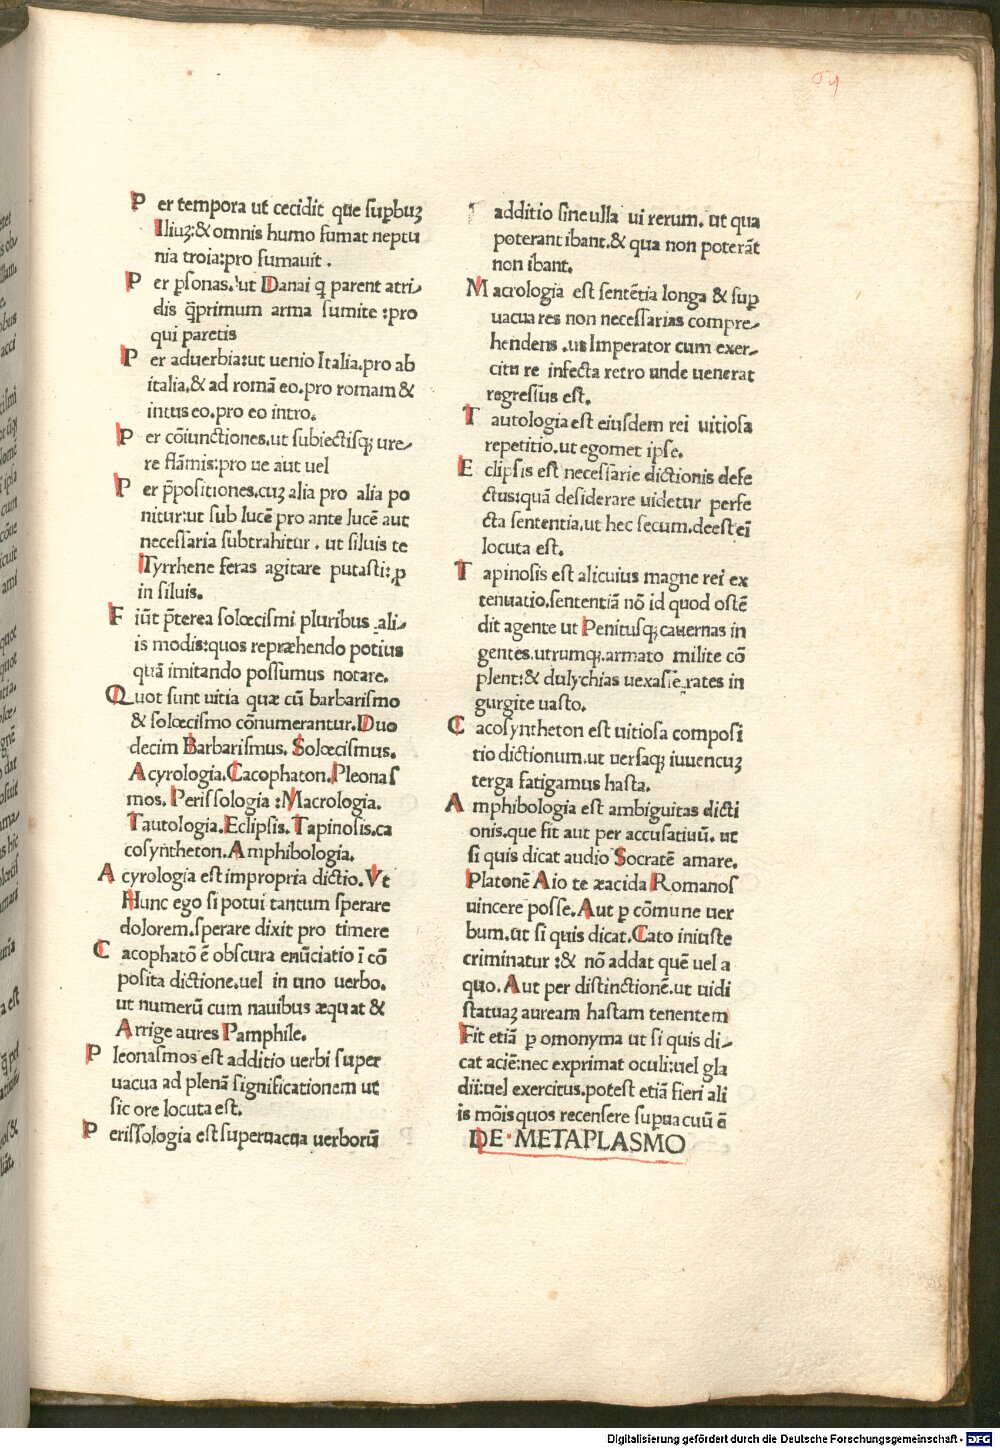 64
Per tempora ut cecidit que suꝑbuꝫ
Iliuꝫ:& omnis humo fumat neptu
nia troia:pro fumauit.
Per ꝑsonas.ut Danai ꝗ parent atri-
dis ꝗ̃primum arma sumite:pro
qui paretis
Per aduerbia:ut uenio Italia.pro ab
italia.& ad romā eo.pro romam &
intus eo.pro eo intro.
Per cōiunctiones.ut subiectisqꝫ ure-
re flāmis:pro ue aut uel
Per p̄positiones.cuꝫ alia pro alia po
nitur:ut sub lucē pro ante lucē aut
necessaria subtrahitur. ut siluis te
Tyrrhene feras agitare putasti:ꝓ
in siluis.
Fiūt p̄terea solœcismi pluribus ali-
is modis:quos repræhendo potius
quā imitando possumus notare.
Quot sunt uitia quæ cū barbarismo
& solœcismo cōnumerantur.Duo
decim Barbarismus. Solœcismus.
Acyrologia.Cacophaton.Pleonas
mos. Perissologia:Macrologia.
Tautologia.Eclipsis.Tapinosis.ca
cosyntheton.Amphibologia.
Acyrologia est impropria dictio.Vt
Hunc ego si potui tantum sperare
dolorem.sperare dixit pro timere
Cacophatō ē obscura enūciatio ī cō
posita dictione.uel in uno uerbo.
ut numerū cum nauibus æquat &
Arrige aures Pamphile.
Pleonasmos est additio uerbi super
uacua ad plenā significationem ut
sic ore locuta est.
Perissologia est superuacua uerborū
additio sine ulla ui rerum. ut qua
poterant ibant.& qua non poterāt
non ibant.
Macrologia est sentētia longa & suꝑ
uacua res non necessarias compre-
hendens.ut Imperator cum exer-
citu re infecta retro unde uenerat
regressus est.
Tautologia est eiusdem rei uitiosa
repetitio.ut egomet ipse.
Eclipsis est necessarie dictionis defe
ctus:quā desiderare uidetur perfe
cta sententia.ut hec secum.deest eī
locuta est.
Tapinosis est alicuius magne rei ex
tenuatio.sententiā nō id quod ostē
dit agente ut Penitusqꝫ cauernas in
gentes.utrumqꝫ.armato milite cō
plent:& dulychias uexasse rates in
gurgite uasto.
Cacosyntheton est uitiosa composi
tio dictionum.ut uersaqꝫ iuuencuꝫ
terga fatigamus hasta.
Amphibologia est ambiguitas dicti
onis.que fit aut per accusatiuū. ut
si quis dicat audio Socratē amare.
Platonē Aio te æacida Romanos
uincere posse.Aut ꝑ cōmune uer
bum.ut si quis dicat.Cato iniuste
criminatur:& nō addat quē uel a
quo.Aut per distinctionē.ut uidi
statuaꝫ auream hastam tenentem
Fit etiā ꝑ omonyma ut si quis di-
cat aciē:nec exprimat oculi:uel gla
dii:uel exercitus.potest etiā fieri ali
is mōis quos recensere supuacuū ē
DE·METAPLASMO
Digitalisierung gefördert durch die Deutsche Forschungsgemeinschaft - DFG